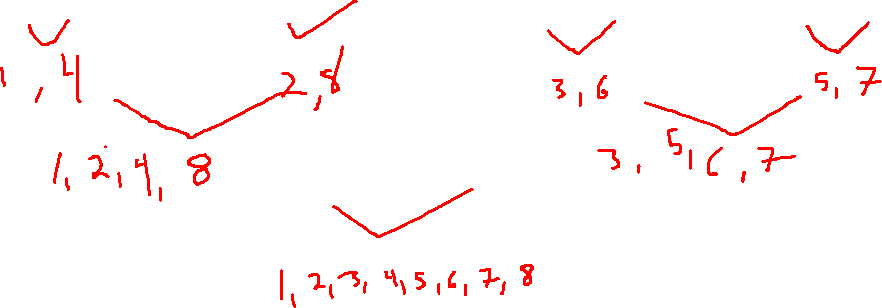 1, 4 2, 8 3, 6 5, 7
1, 2, 4, 8 3, 5, 6, 7
1, 2, 3, 4, 5, 6, 7, 8